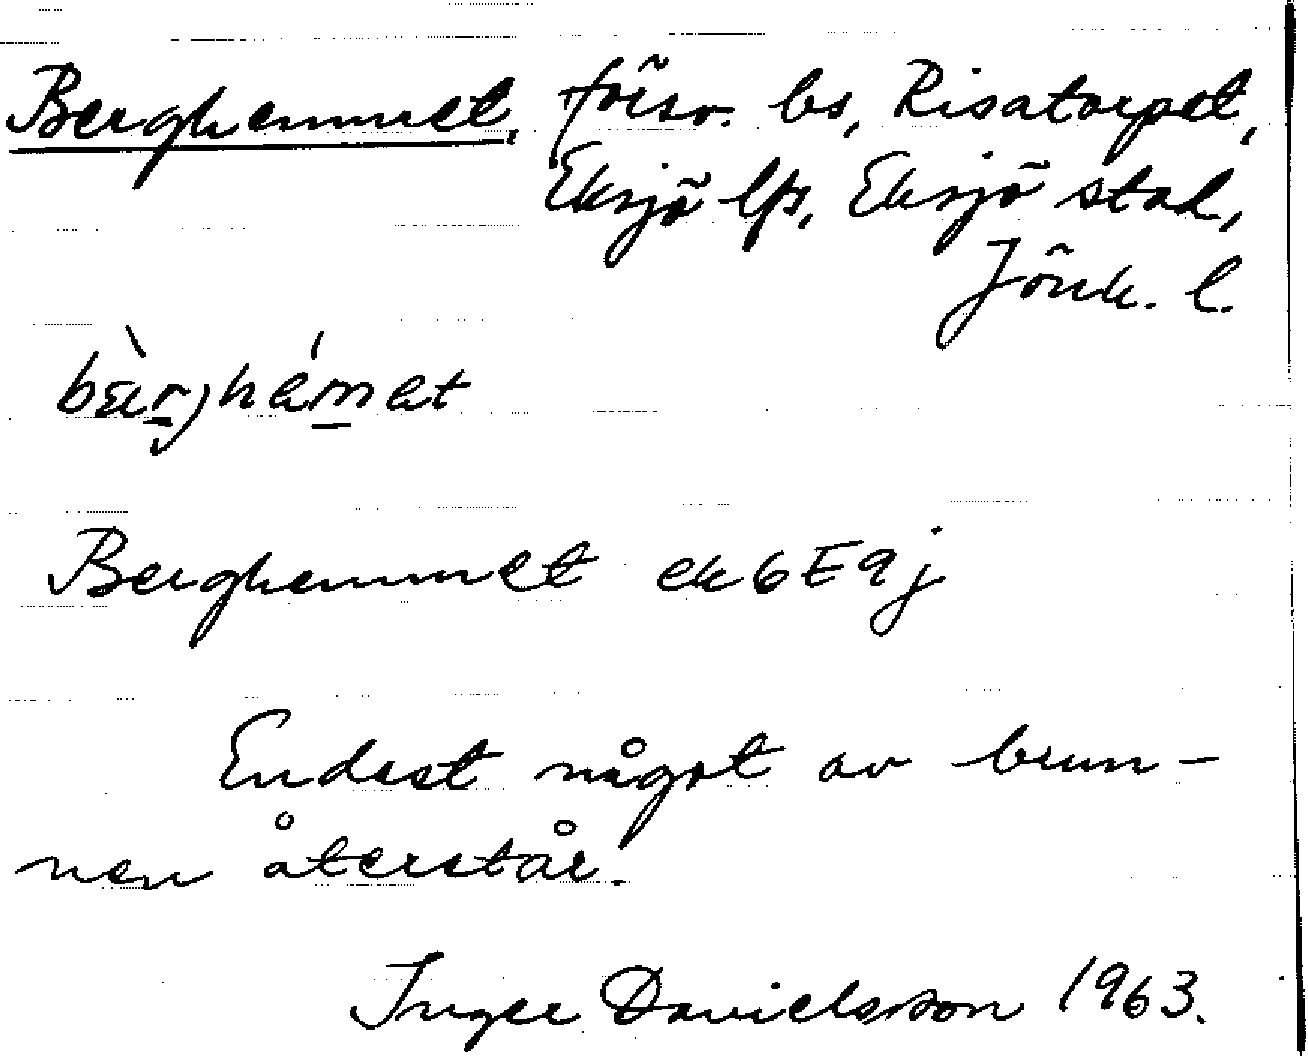 Berghemmet, försv. bs, Risatorpet,
Eksjö lfs, Eksjö stad,
Jönk. l.
bæ̀rghémet
Berghemmet ek6E9j
Endast något av brun-
nen återstår.
Inger Davielsson 1963.